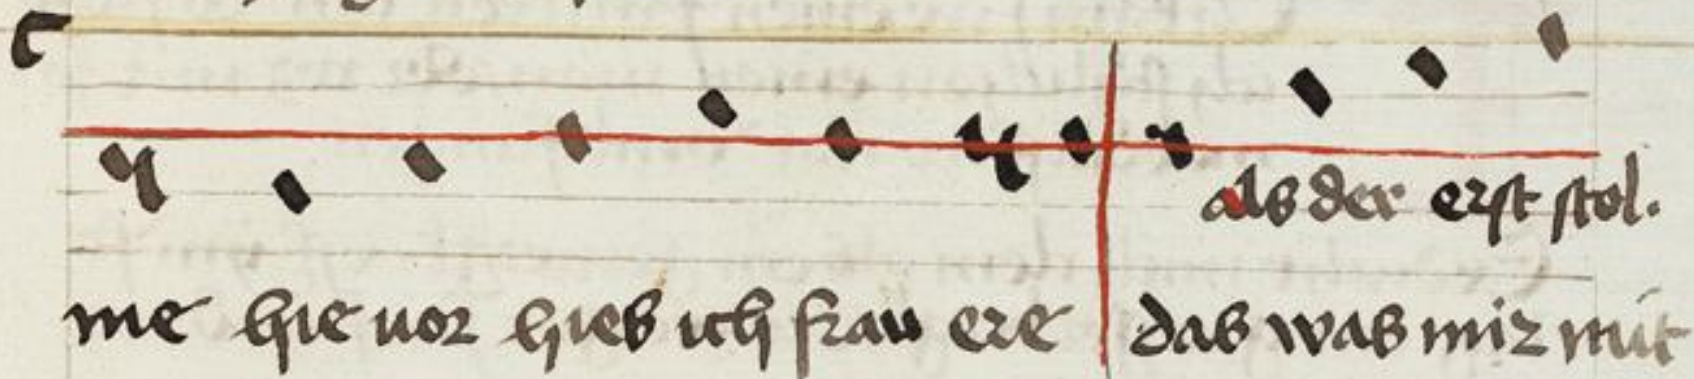 als der erst stol.
me hie uor hies ich frau ere das was mir nit